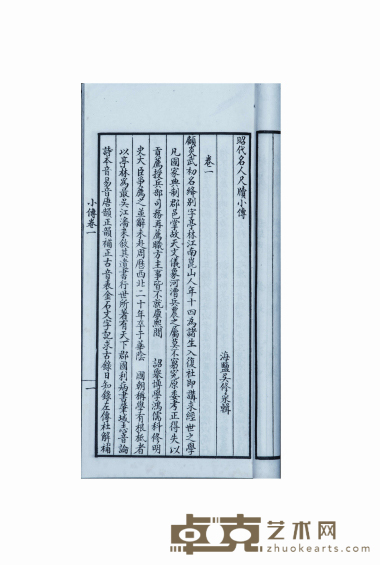 昭代名人尺牘小傳
海鹽吳修采輯
卷一
顧炎武初名絳別字亭林江南崑山人年十四為諸生入復社即講求經世之學
凡國家典制郡邑掌故天文儀象河漕兵農之屬莫不窮究原委考正得失以
貢薦授兵部司務再薦職方主事皆不就康熙間 詔舉博學鴻儒科修明
史大臣爭薦之並辭未赴周歷西北二十年卒于華陰 國朝稱學有根柢者
以亭林為最吳江潘耒敘其遺書行世所著有天下郡國利病書肇域志音論
詩本音易音唐韻正韻補正古音表金石文字記求古錄日知錄左傳杜解補
小傳卷一
一
卓克艺术网
zhuokearts.com